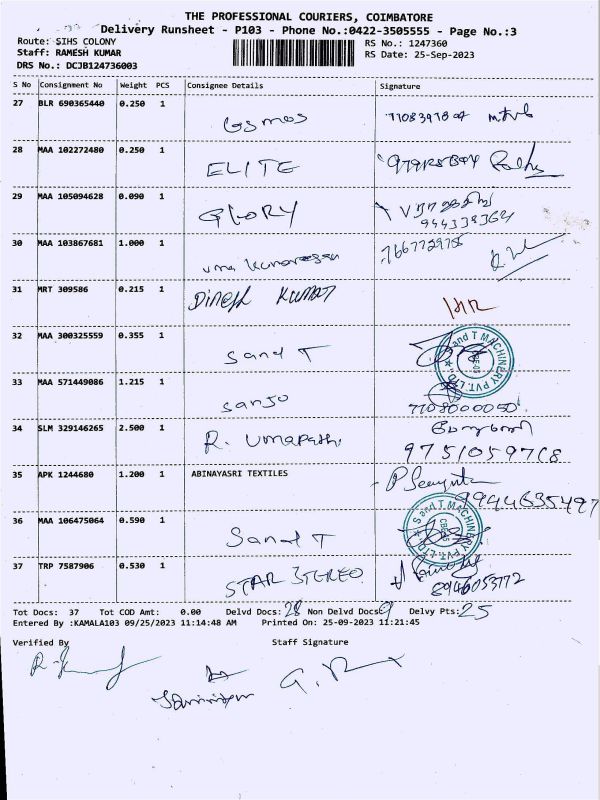 THE PROFESSIONAL COURIERS, COIMBATORE
Delivery Runsheet - P103 - Phone No.:0422-3505555 - Page No.:3
Route: SIHS COLONY
Staff: RAMESH KUMAR
DRS No.: DCJB124736003
RS No.: 1247360
RS Date: 25-Sep-2023
S No Consignment No Weight PCS Consignee Details Signature
27 BLR 690365440 0.250 1
28 MAA 102272480 0.250 1 ELITE
29 MAA 105094628 0.090 1 GLORY
30 MAA 103867681 1.000 1
31 MRT 309586 0.215 1 DINESH KUMAR
32 MAA 300325559 0.355 1 Sand T
S and T MACHINERY PVT. LTD.
33 MAA 571449086 1.215 1 Sanjo 7708000050
34 SLM 329146265 2.500 1 R. Umapathi 9751059768
35 APK 1244680 1.200 1 ABINAYASRI TEXTILES 9944635497
36 MAA 106475064 0.590 1 Sand T
S and T MACHINERY PVT. LTD.
37 TRP 7587906 0.530 1 STAR STEREO
Tot Docs: 37 Tot COD Amt: 0.00 Delvd Docs: 28 Non Delvd Docs: 9 Delvy Pts: 25
Entered By :KAMALA103 09/25/2023 11:14:48 AM Printed On: 25-09-2023 11:21:45
Verified By Staff Signature